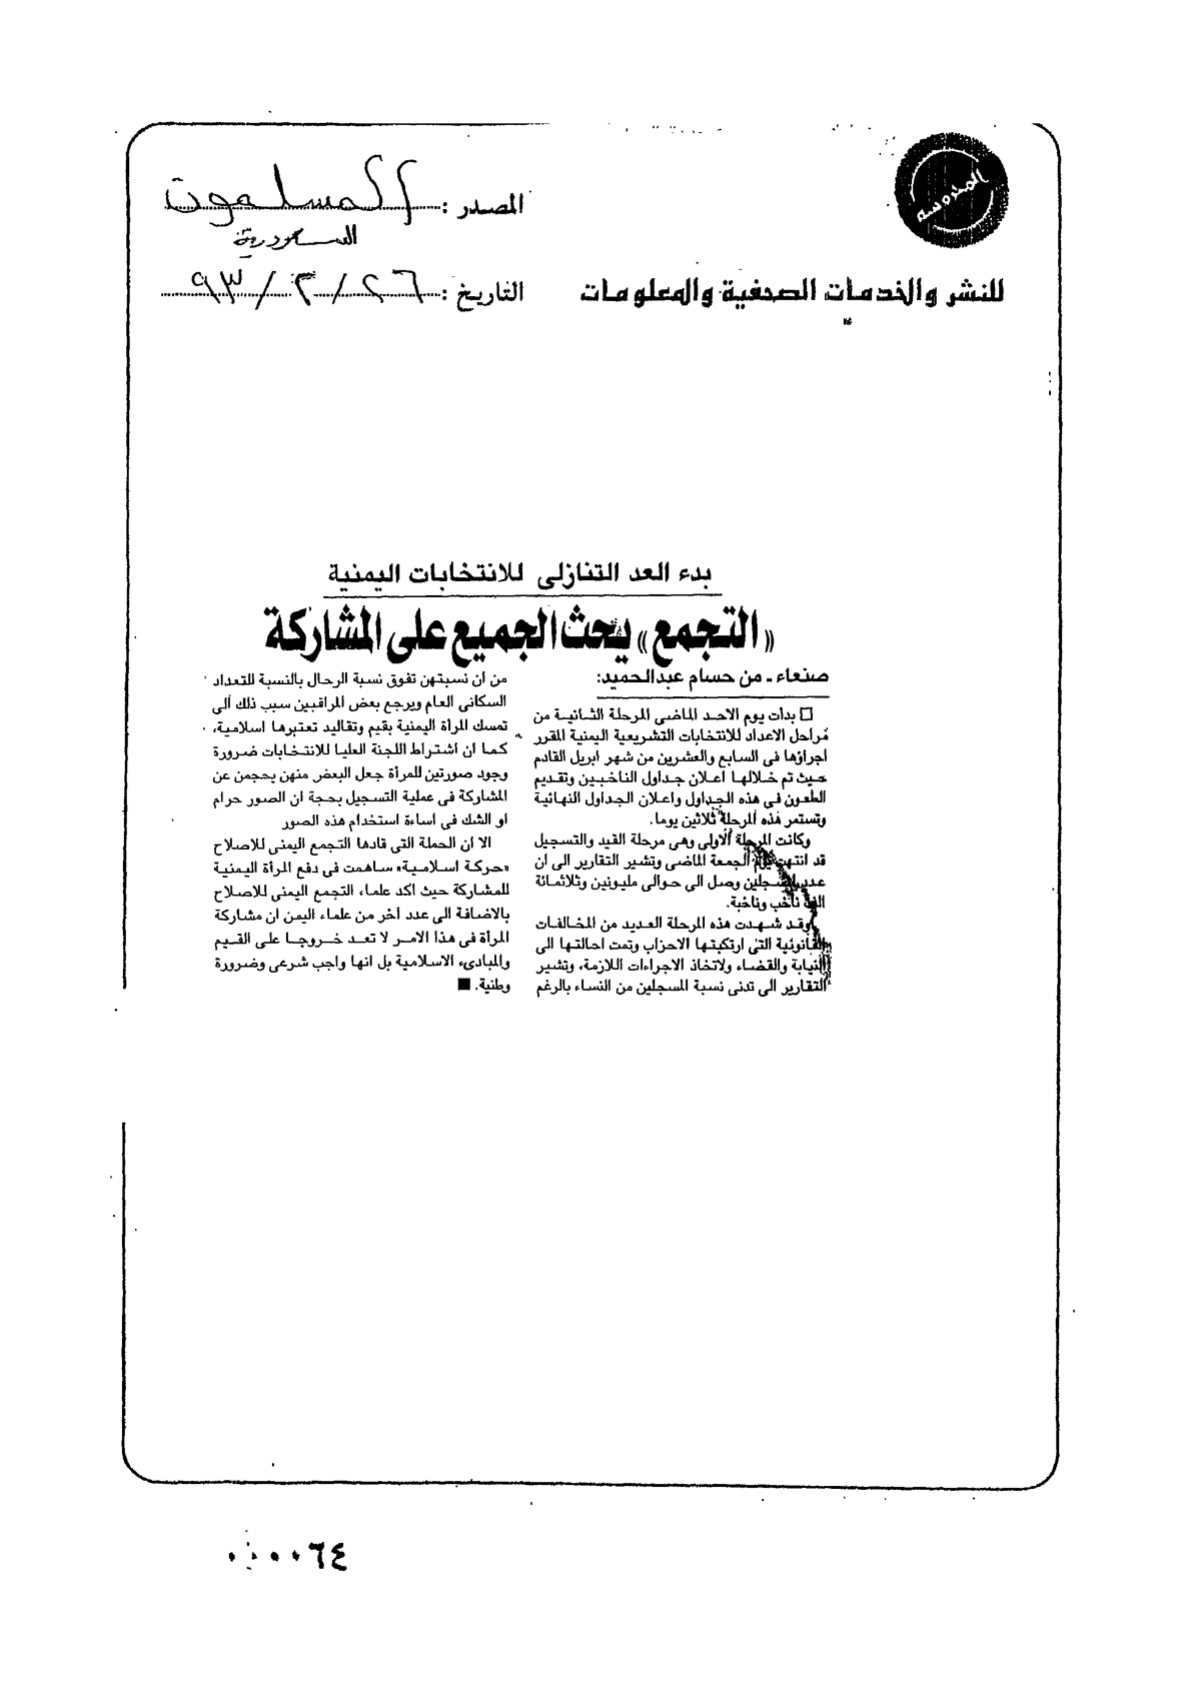 المصدر : المسلمون
السعودية
للنشر والخدمات الصحفية والمعلومات
التاريخ : ٢٦ / ٢ / ٩٣
بدء العد التنازلى للانتخابات اليمنية
«التجمع» يحث الجميع على المشاركة
صنعاء ـ من حسام عبدالحميد:
□ بدأت يوم الاحد الماضى المرحلة الثانية من
مراحل الاعداد للانتخابات التشريعية اليمنية المقرر
اجراؤها فى السابع والعشرين من شهر ابريل القادم
حيث تم خلالها اعلان جداول الناخبين وتقديم
الطعون فى هذه الجداول واعلان الجداول النهائية
وتستمر هذه المرحلة ثلاثين يوما.
وكانت المرحلة الأولى وهى مرحلة القيد والتسجيل
قد انتهت يوم الجمعة الماضى وتشير التقارير الى ان
عدد المسجلين وصل الى حوالى مليونين وثلاثمائة
الف ناخب وناخبة.
وقد شهدت هذه المرحلة العديد من المخالفات
القانونية التى ارتكبتها الاحزاب وتمت احالتها الى
النيابة والقضاء ولاتخاذ الاجراءات اللازمة، وتشير
التقارير الى تدنى نسبة المسجلين من النساء بالرغم
من أن نسبتهن تفوق نسبة الرجال بالنسبة للتعداد
السكانى العام ويرجع بعض المراقبين سبب ذلك ألى
تمسك المرأة اليمنية بقيم وتقاليد تعتبرها اسلامية،
كما ان اشتراط اللجنة العليا للانتخابات ضرورة
وجود صورتين للمرأة جعل البعض منهن يحجمن عن
المشاركة فى عملية التسجيل بحجة ان الصور حرام
او الشك فى اساءة استخدام هذه الصور
الا ان الحملة التى قادها التجمع اليمنى للاصلاح
«حركة اسلامية» ساهمت فى دفع المرأة اليمنية
للمشاركة حيث اكد علماء التجمع اليمنى للاصلاح
بالاضافة الى عدد آخر من علماء اليمن ان مشاركة
المرأة فى هذا الامر لا تعد خروجا على القيم
والمبادىء الاسلامية بل انها واجب شرعى وضرورة
وطنية. ■